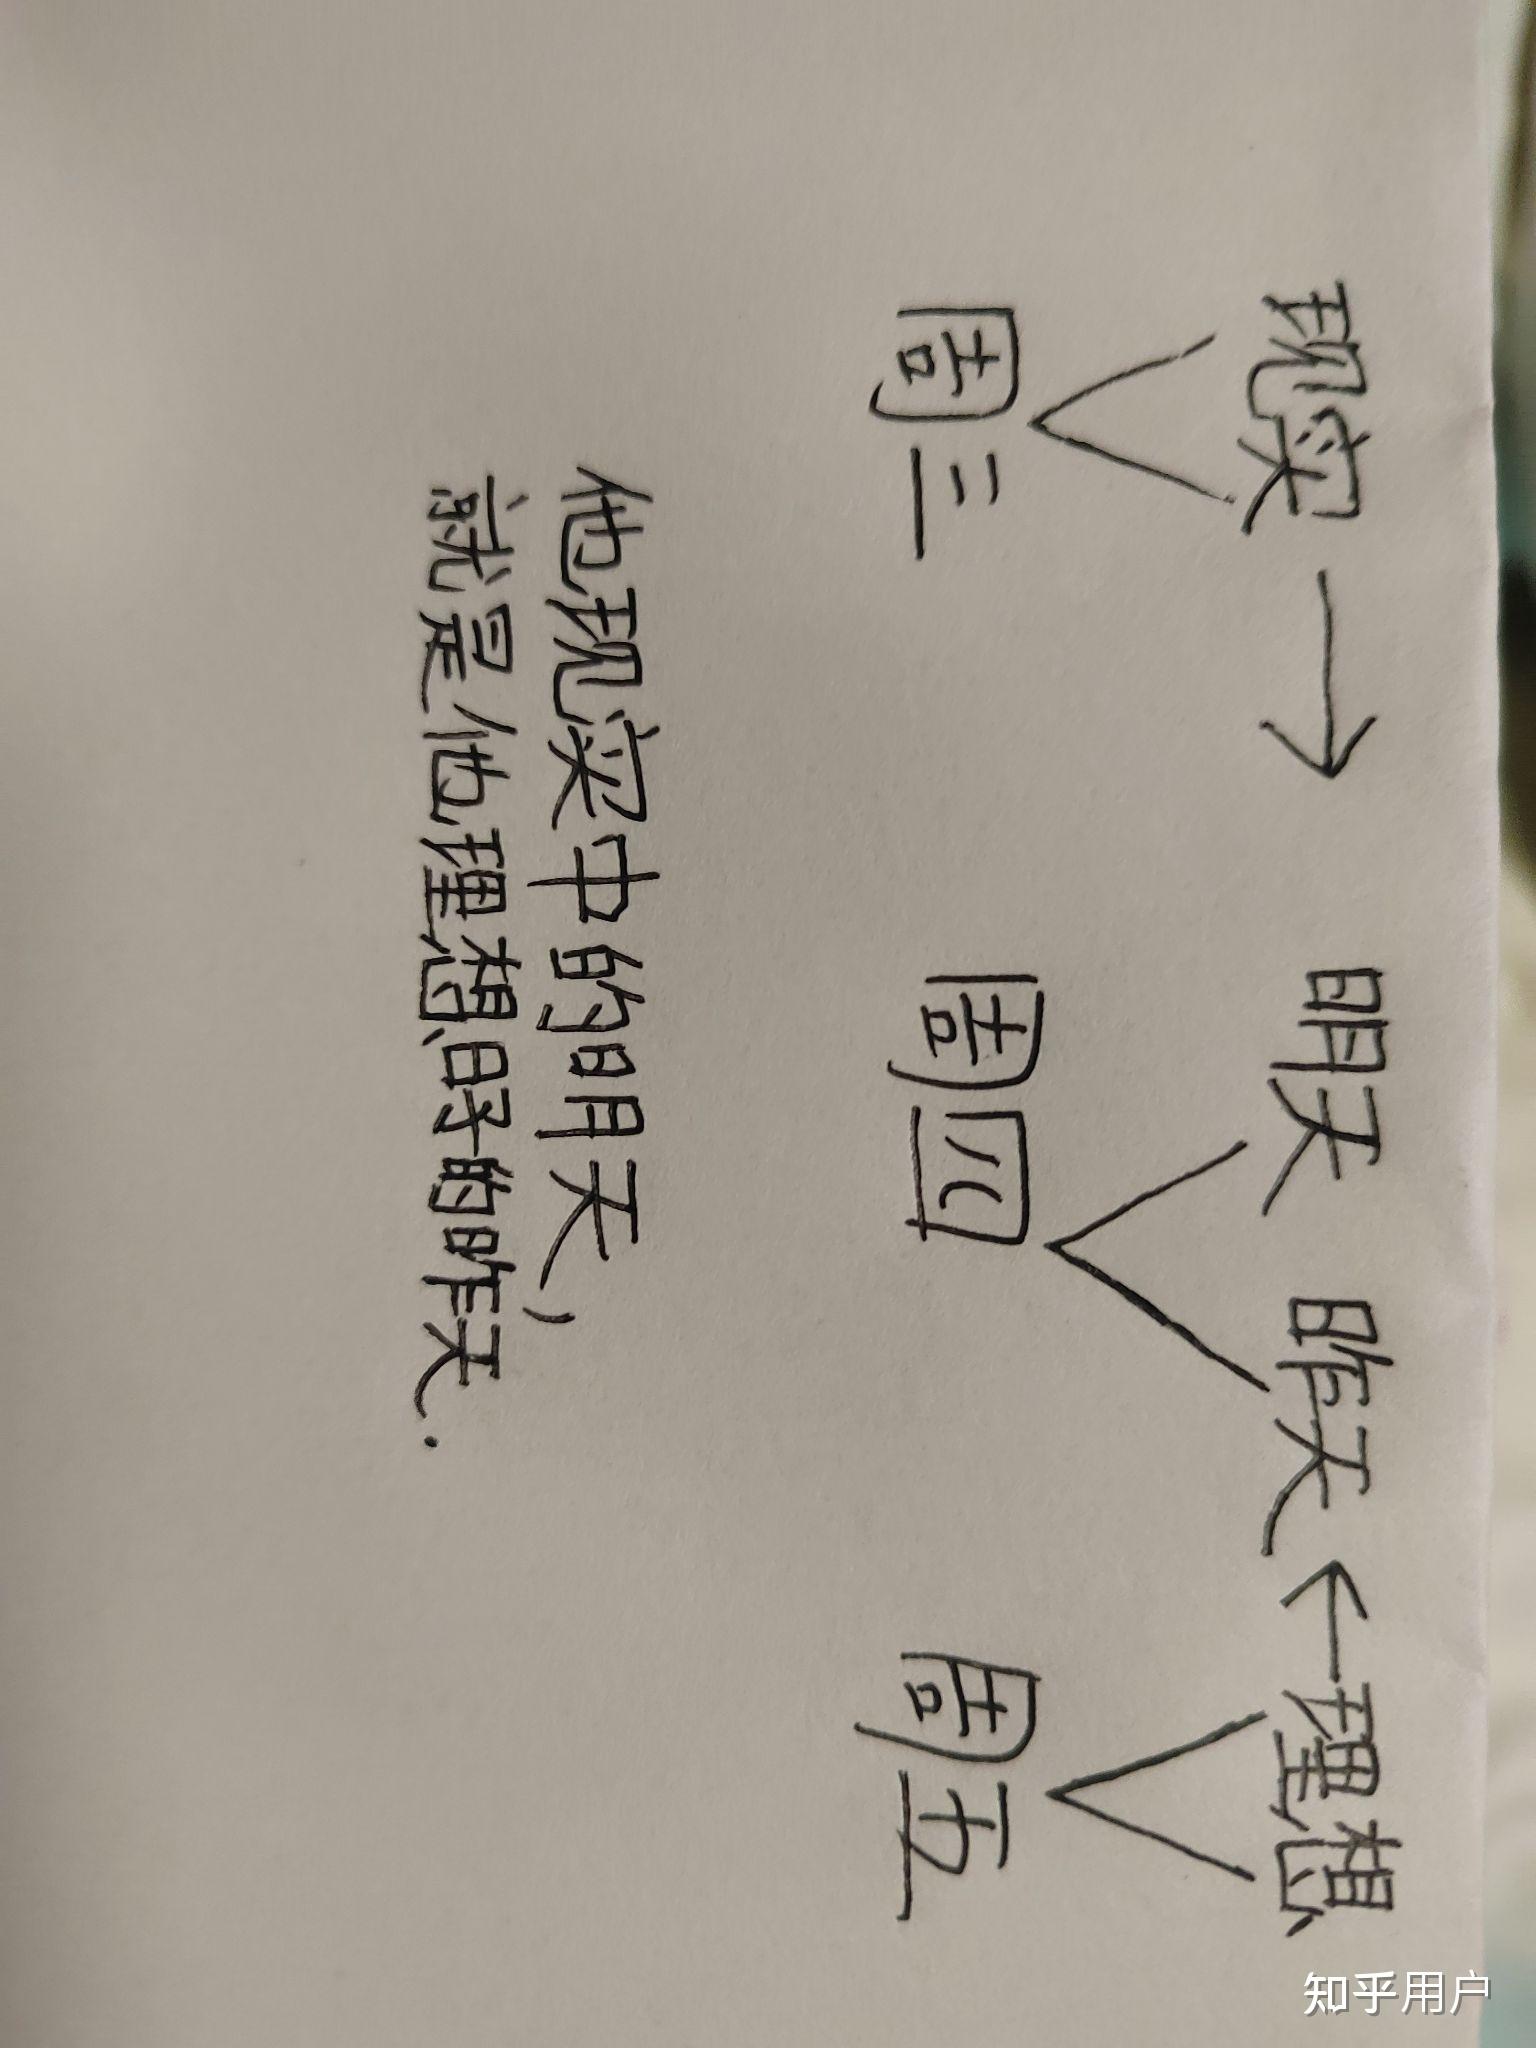 现实 → 明天 昨天 ← 理想
周三 周四 周五
他现实中的明天，
就是他理想的昨天.
知乎用户